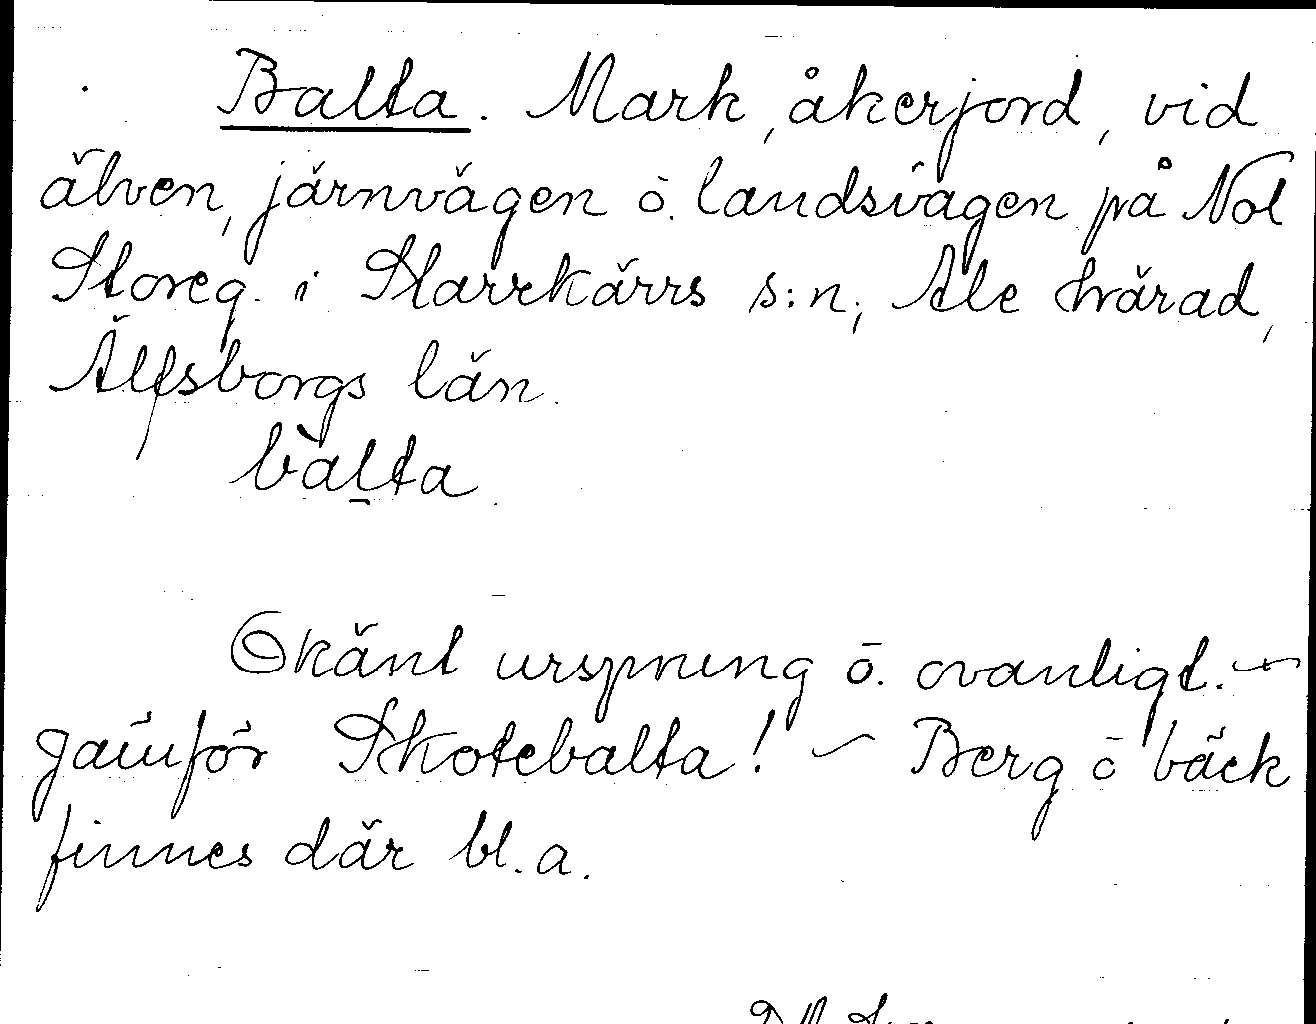 Balta. Mark, åkerjord, vid
älven, järnvägen o. landsvägen på Nol
Storeg. i Starrkärrs s:n, Ale härad,
Älfsborgs län.
bàl̠ta
Okänt ursprung o. ovanligt. ~
Jämför Skotebalta! ~ Berg o bäck
finnes där bl. a.